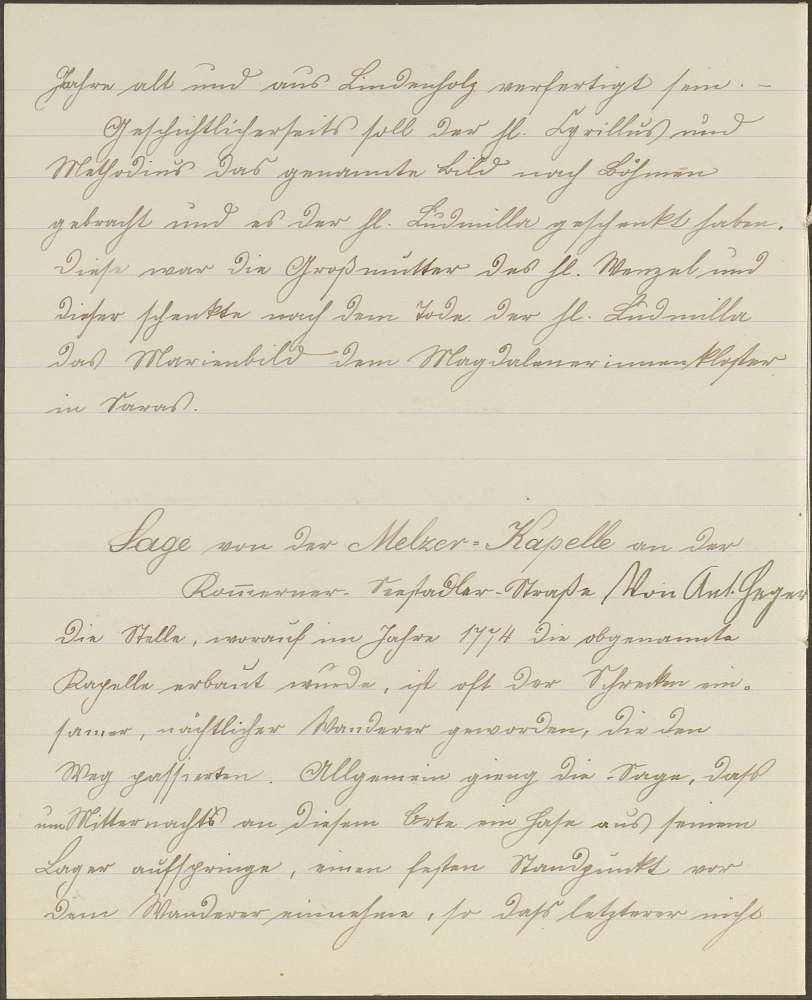 Jahre alt und aus Lindenholz verfertigt sein. –
Geschichtlicherseits soll der hl. Cyrillus und
Methodius das genannte Bild nach Böhmen
gebracht und es der hl. Ludmilla geschenkt haben.
Diese war die Großmutter des hl. Wenzel und
dieser schenkte nach dem Tode der hl. Ludmilla
das Marienbild dem Magdalenerinnenkloster
in Saras.
Sage von der Melzer-Kapelle an der
Kom̅erner-Seestadler-Straße /Von Ant. Heger
Die Stelle, worauf im Jahre 1774 die obgenannte
Kapelle erbaut wurde, ist oft der Schrecken ein-
samer, nächtlicher Wanderer geworden, die den
Weg passierten. Allgemein gieng die Sage, dass
um Mitternachts an diesem Orte ein Hase aus seinem
Lager aufspringe, einen festen Standpunkt vor
dem Wanderer einnehme, so dass letzterer nicht